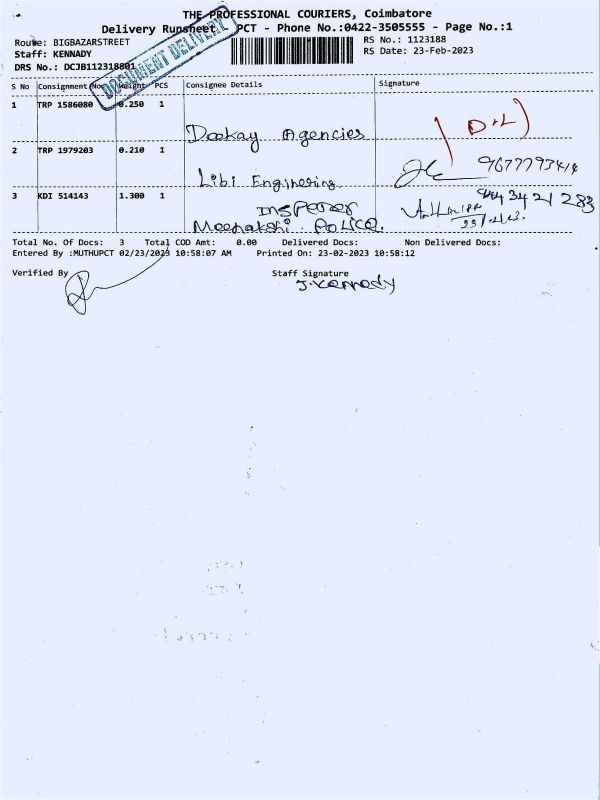 THE PROFESSIONAL COURIERS, Coimbatore
Delivery Runsheet PCT - Phone No.:0422-3505555 - Page No.:1
Route: BIGBAZARSTREET
RS No.: 1123188
Staff: KENNADY
RS Date: 23-Feb-2023
DRS No.: DCJB112318801
DOCUMENT DELIVERY
S No Consignment No. Weight PCS Consignee Details Signature
1 TRP 1586080 0.250 1
Dookay Agencies
2 TRP 1979203 0.210 1
Libi Enginering
3 KDI 514143 1.300 1
Meenakshi Police.
Total No. Of Docs: 3 Total COD Amt: 0.00 Delivered Docs: Non Delivered Docs:
Entered By :MUTHUPCT 02/23/2023 10:58:07 AM Printed On: 23-02-2023 10:58:12
Verified By
Staff Signature
J.Kennady